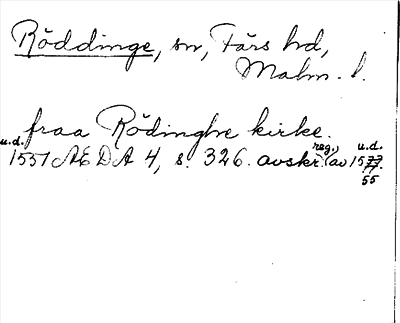 Röddinge, sn, Färs hd,
Malm. l.
fraa Rödinghe kirke.
u.d. reg., u.d.
1551 AEDA 4, s. 326. avskr. (av 1577.
55